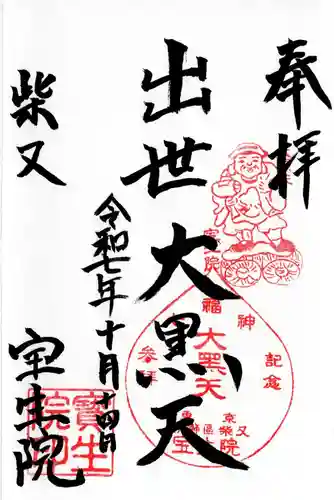 奉拝
出世大黒天
令和七年十月十四日
柴又
宝生院
宝生院
福神
大黒天
参拝
記念
東京
葛飾区柴又
宝生院
寶生
院印